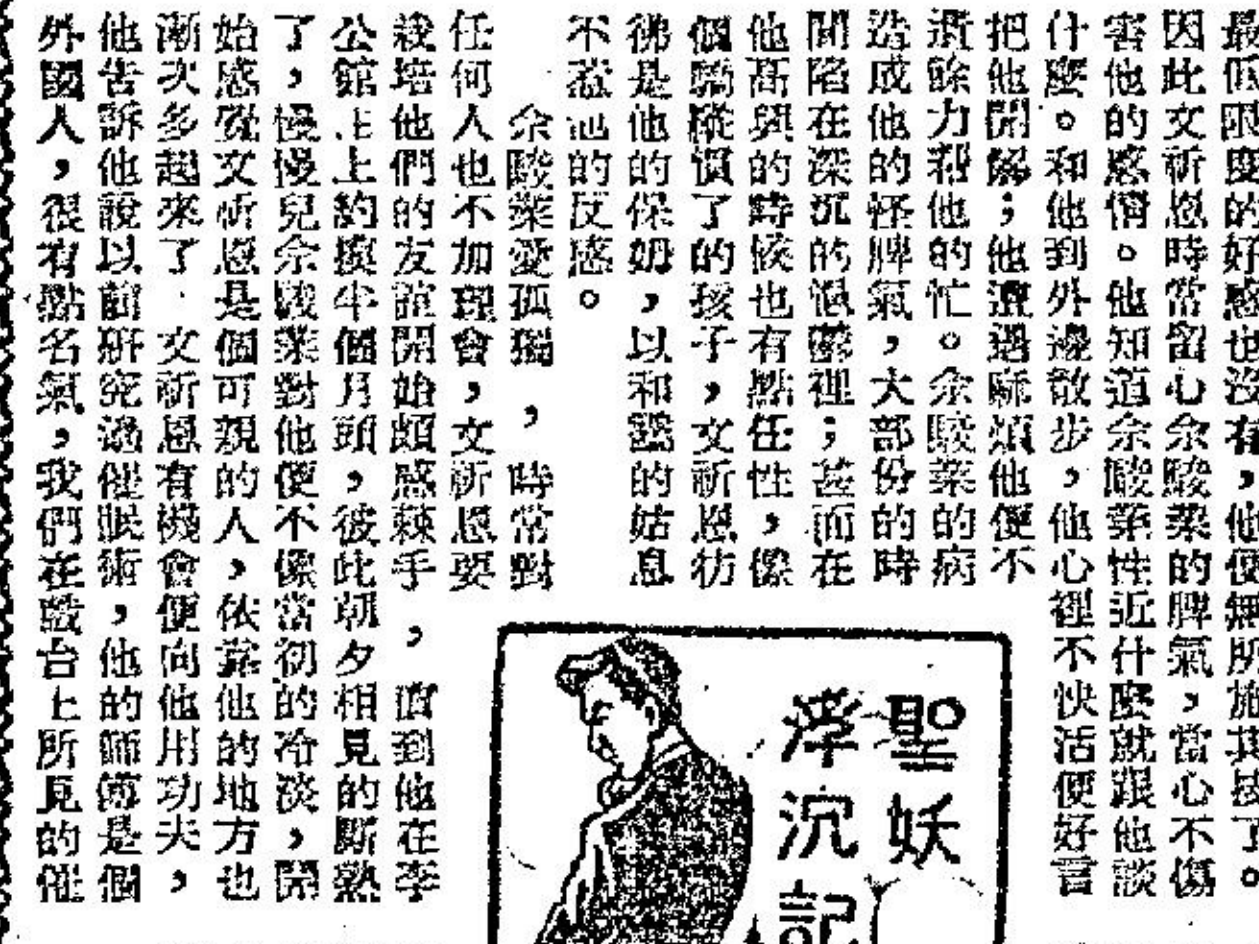 最低限度的好感也沒有，他便無所施其技了。
因此文祈恩時常留心余駿業的脾氣，當心不傷
害他的感情。他知道余駿業性近什麼就跟他談
什麼。和他到外邊散步，他心裡不快活便好言
把他開解；他遭遇麻煩他便不
遺餘力幫他的忙。余駿業的病
造成他的怪脾氣，大部份的時
間陷在深沉的悒鬱裡；甚而在
他高興的時候也有點任性，像
個驕縱慣了的孩子，文祈恩彷
彿是他的保姆，以和藹的姑息
不惹他的反感。
余駿業愛孤獨，時常對
任何人也不加理會，文祈恩要
栽培他們的友誼開始頗感棘手，直到他在李
公館住上約摸半個月頭，彼此朝夕相見的斷熟
了，慢慢兒余駿業對他便不像當初的冷淡，開
始感覺文祈恩是個可親的人，依靠他的地方也
漸次多起來了．文祈恩有機會便向他用功夫，
他告訴他說以前研究過催眠術，他的師傅是個
外國人，很有點名氣，我們在戲台上所見的催
聖妖
浮沉記